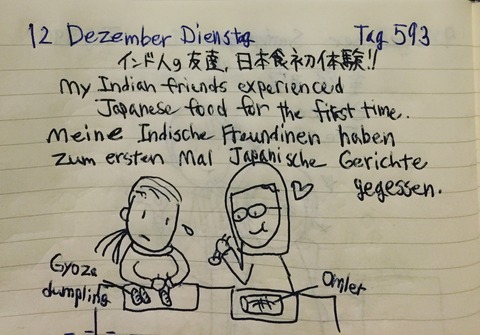 12 Dezember Dienstag Tag 593
インド人の友達、日本食初体験!!
My Indian friends experienced
Japanese food for the first time.
Meine Indische Freundinen haben
zum ersten Mal Japanische Gerichte
gegessen.
Gyoza
dumpling
Omlet